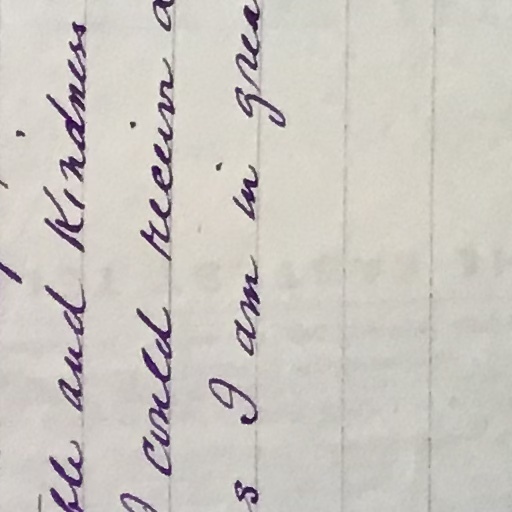 ble and Kindness
I could receive a
s I am in grea